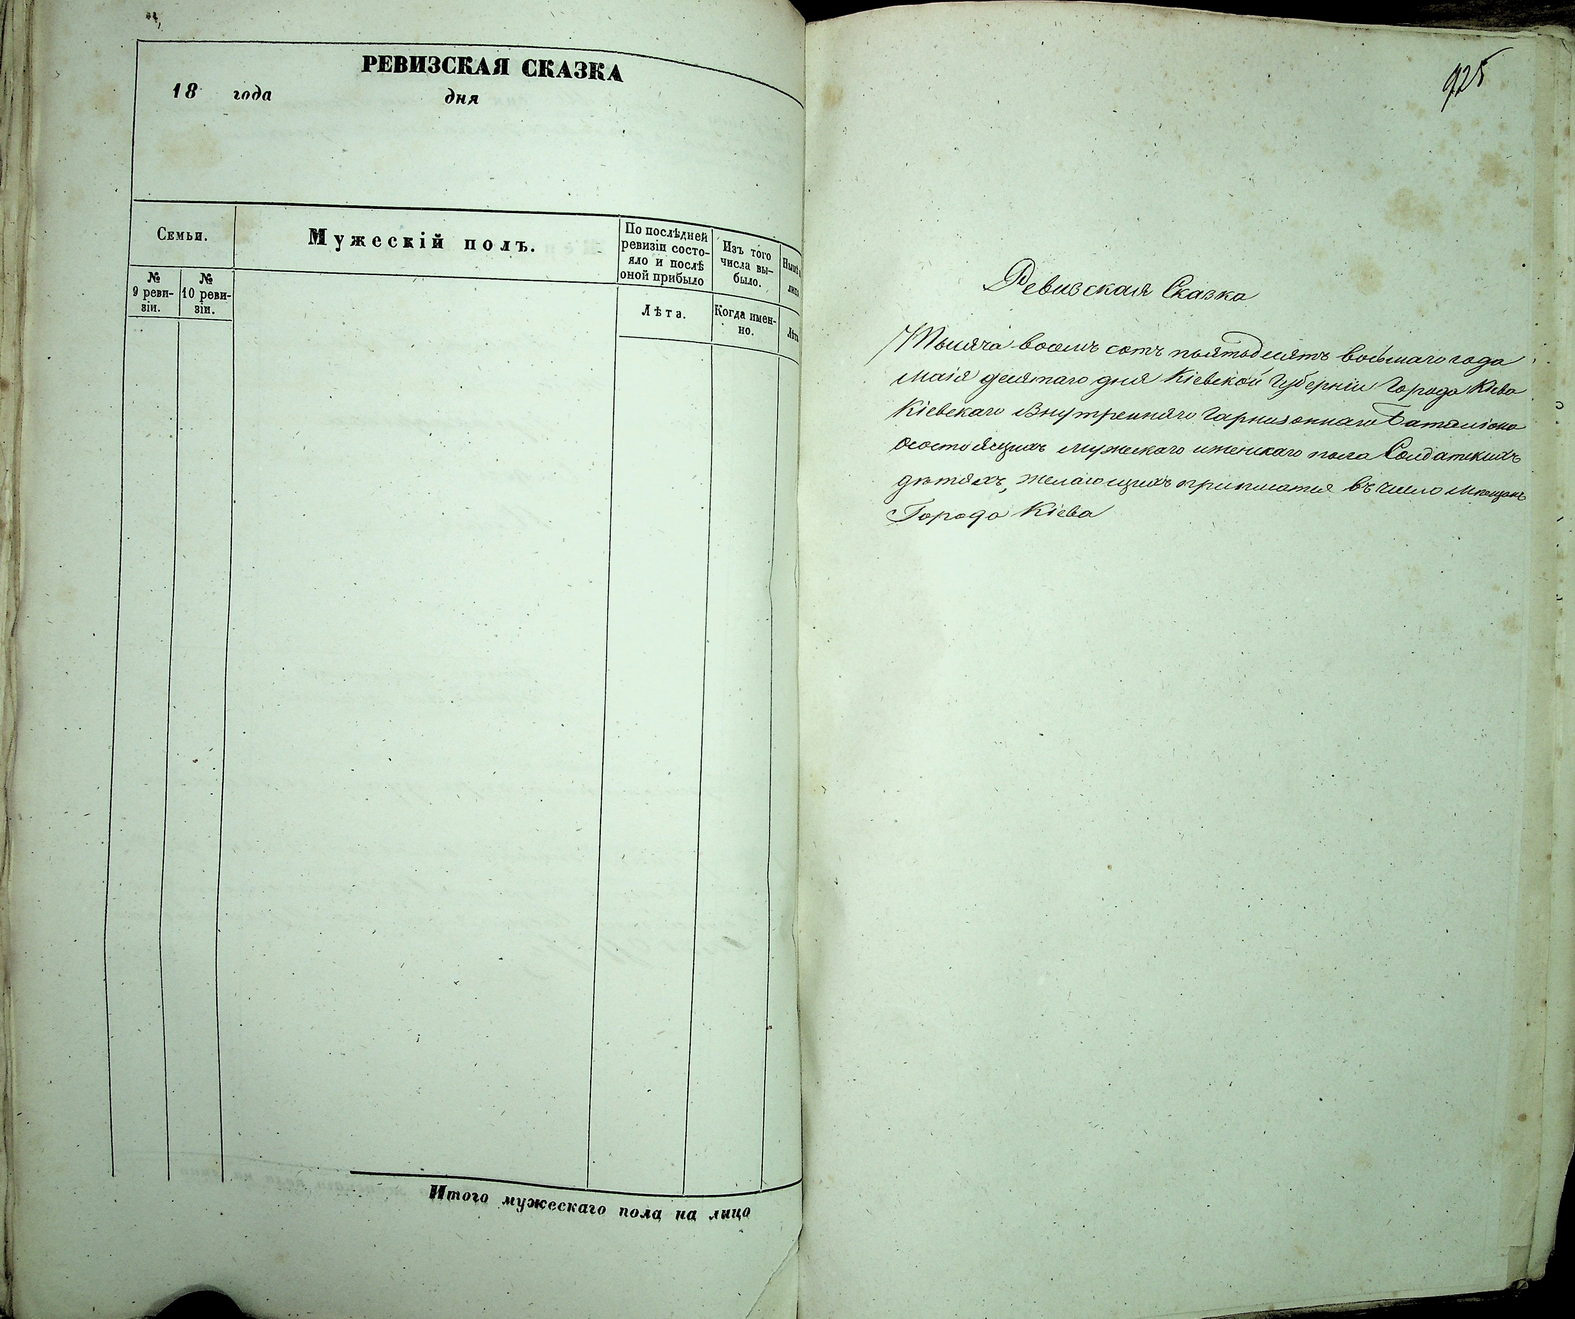 РЕВИЗСКАЯ СКАЗКА
18 года дня
Семьи.
Мужескій полъ.
По послѣдней
ревизіи состо-
яло и послѣ
оной прибыло
Изъ того
числа вы-
было.
№
9 реви-
зіи.
№
10 реви-
зіи.
Лѣта.
Когда имен-
но.
Итого мужескаго пола на лицо
925
Ревизская Сказка
Тысяча восемъ сотъ пятьдесятъ восьмаго года
маія десятаго дня Кіевской Губерніи Города Кіева
Кіевскаго Внутренняго Гарнизоннаго Баталіона
осостоящихъ мужескаго иженскаго пола Солдатскихъ
дѣтяхъ, желающихъ приписатся въ число мѣщанъ
Города Кіева